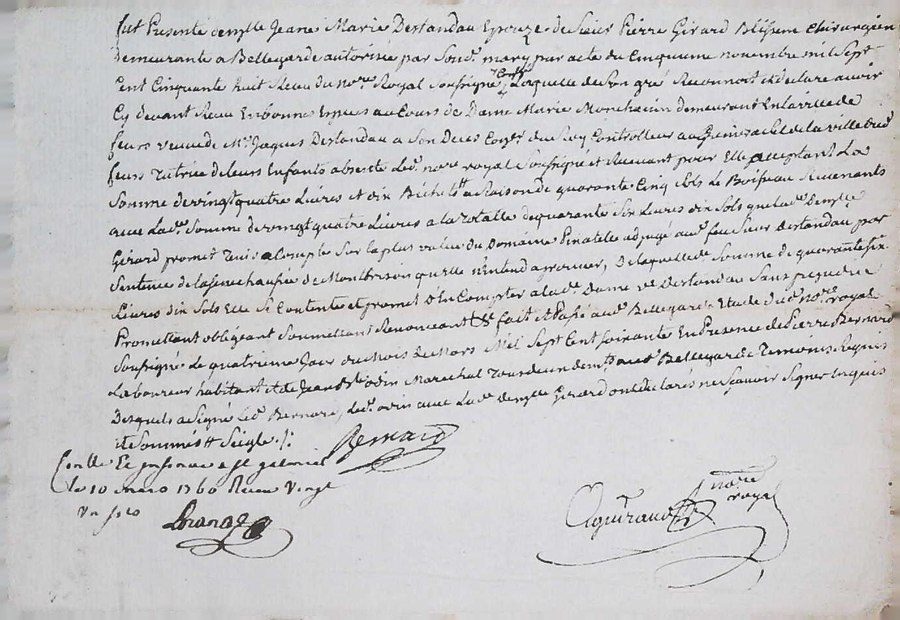 fut Presente demlle Jeane Marie Destandau Epouze de Sieur Pierre Girard Chirurgien
demeurante a Bellegarde autorisée par Sond. mary par acte du Cinquieme novembre mil Sept
Cent Cinquante huit Receu du nore Royal Soussigné Laquelle de Son gré Reconnoit et declare avoir
Cy devant Receu En bonnes Especes au Cours de Dame Marie demeurant En la ville de
feurs veuve de Mr Jaques Destandau a Son Deces Coner du Roy Controlleur au Grenier a Sel de la ville dud
feurs Tutrice de leurs Enfants absente Led. nore royal Soussigné et Recevant pour Elle acceptant La
Somme de vingt quatre Livres et dix Bichets a Raison de quarante Cinq sols Le Boisseau Revenants
avec Lad. Somme de vingt quatre Livres a la Totalle de quarante Six Livres dix Sols que lad. demlle
Girard promet Tenir a Compte Sur la plus value du Domaine adjugé aud. feu Sieur Destandau par
Sentence de la Senechaussée de Montbrison qu'elle n'entend aprouver, De laquelle Somme de quarante Six
Livres dix Sols Elle Se Contente et promet d'En Compter a lad. Dame ve Destandau Sans prejudice
Promettant obligeant Soumettant Renonceant &c fait et Passé aud. Bellegarde Etude dud. nore royal
Soussigné Le quatrieme Jour du Mois de Mars Mil Sept Cent Soixante En Presence de Pierre Bernard
Laboureur habitant et de Jean odin Marechal aud. Bellegarde Temoins Requis
Desquels a Signé Led. Bernard, Led. odin avec Lad. demlle Girard ont declarés ne Sçavoir Signer Enquis
et Sommés
Bernard
Conllé Et a St galmier
le 10 mars 1760 Receu Vingt
nore
royal